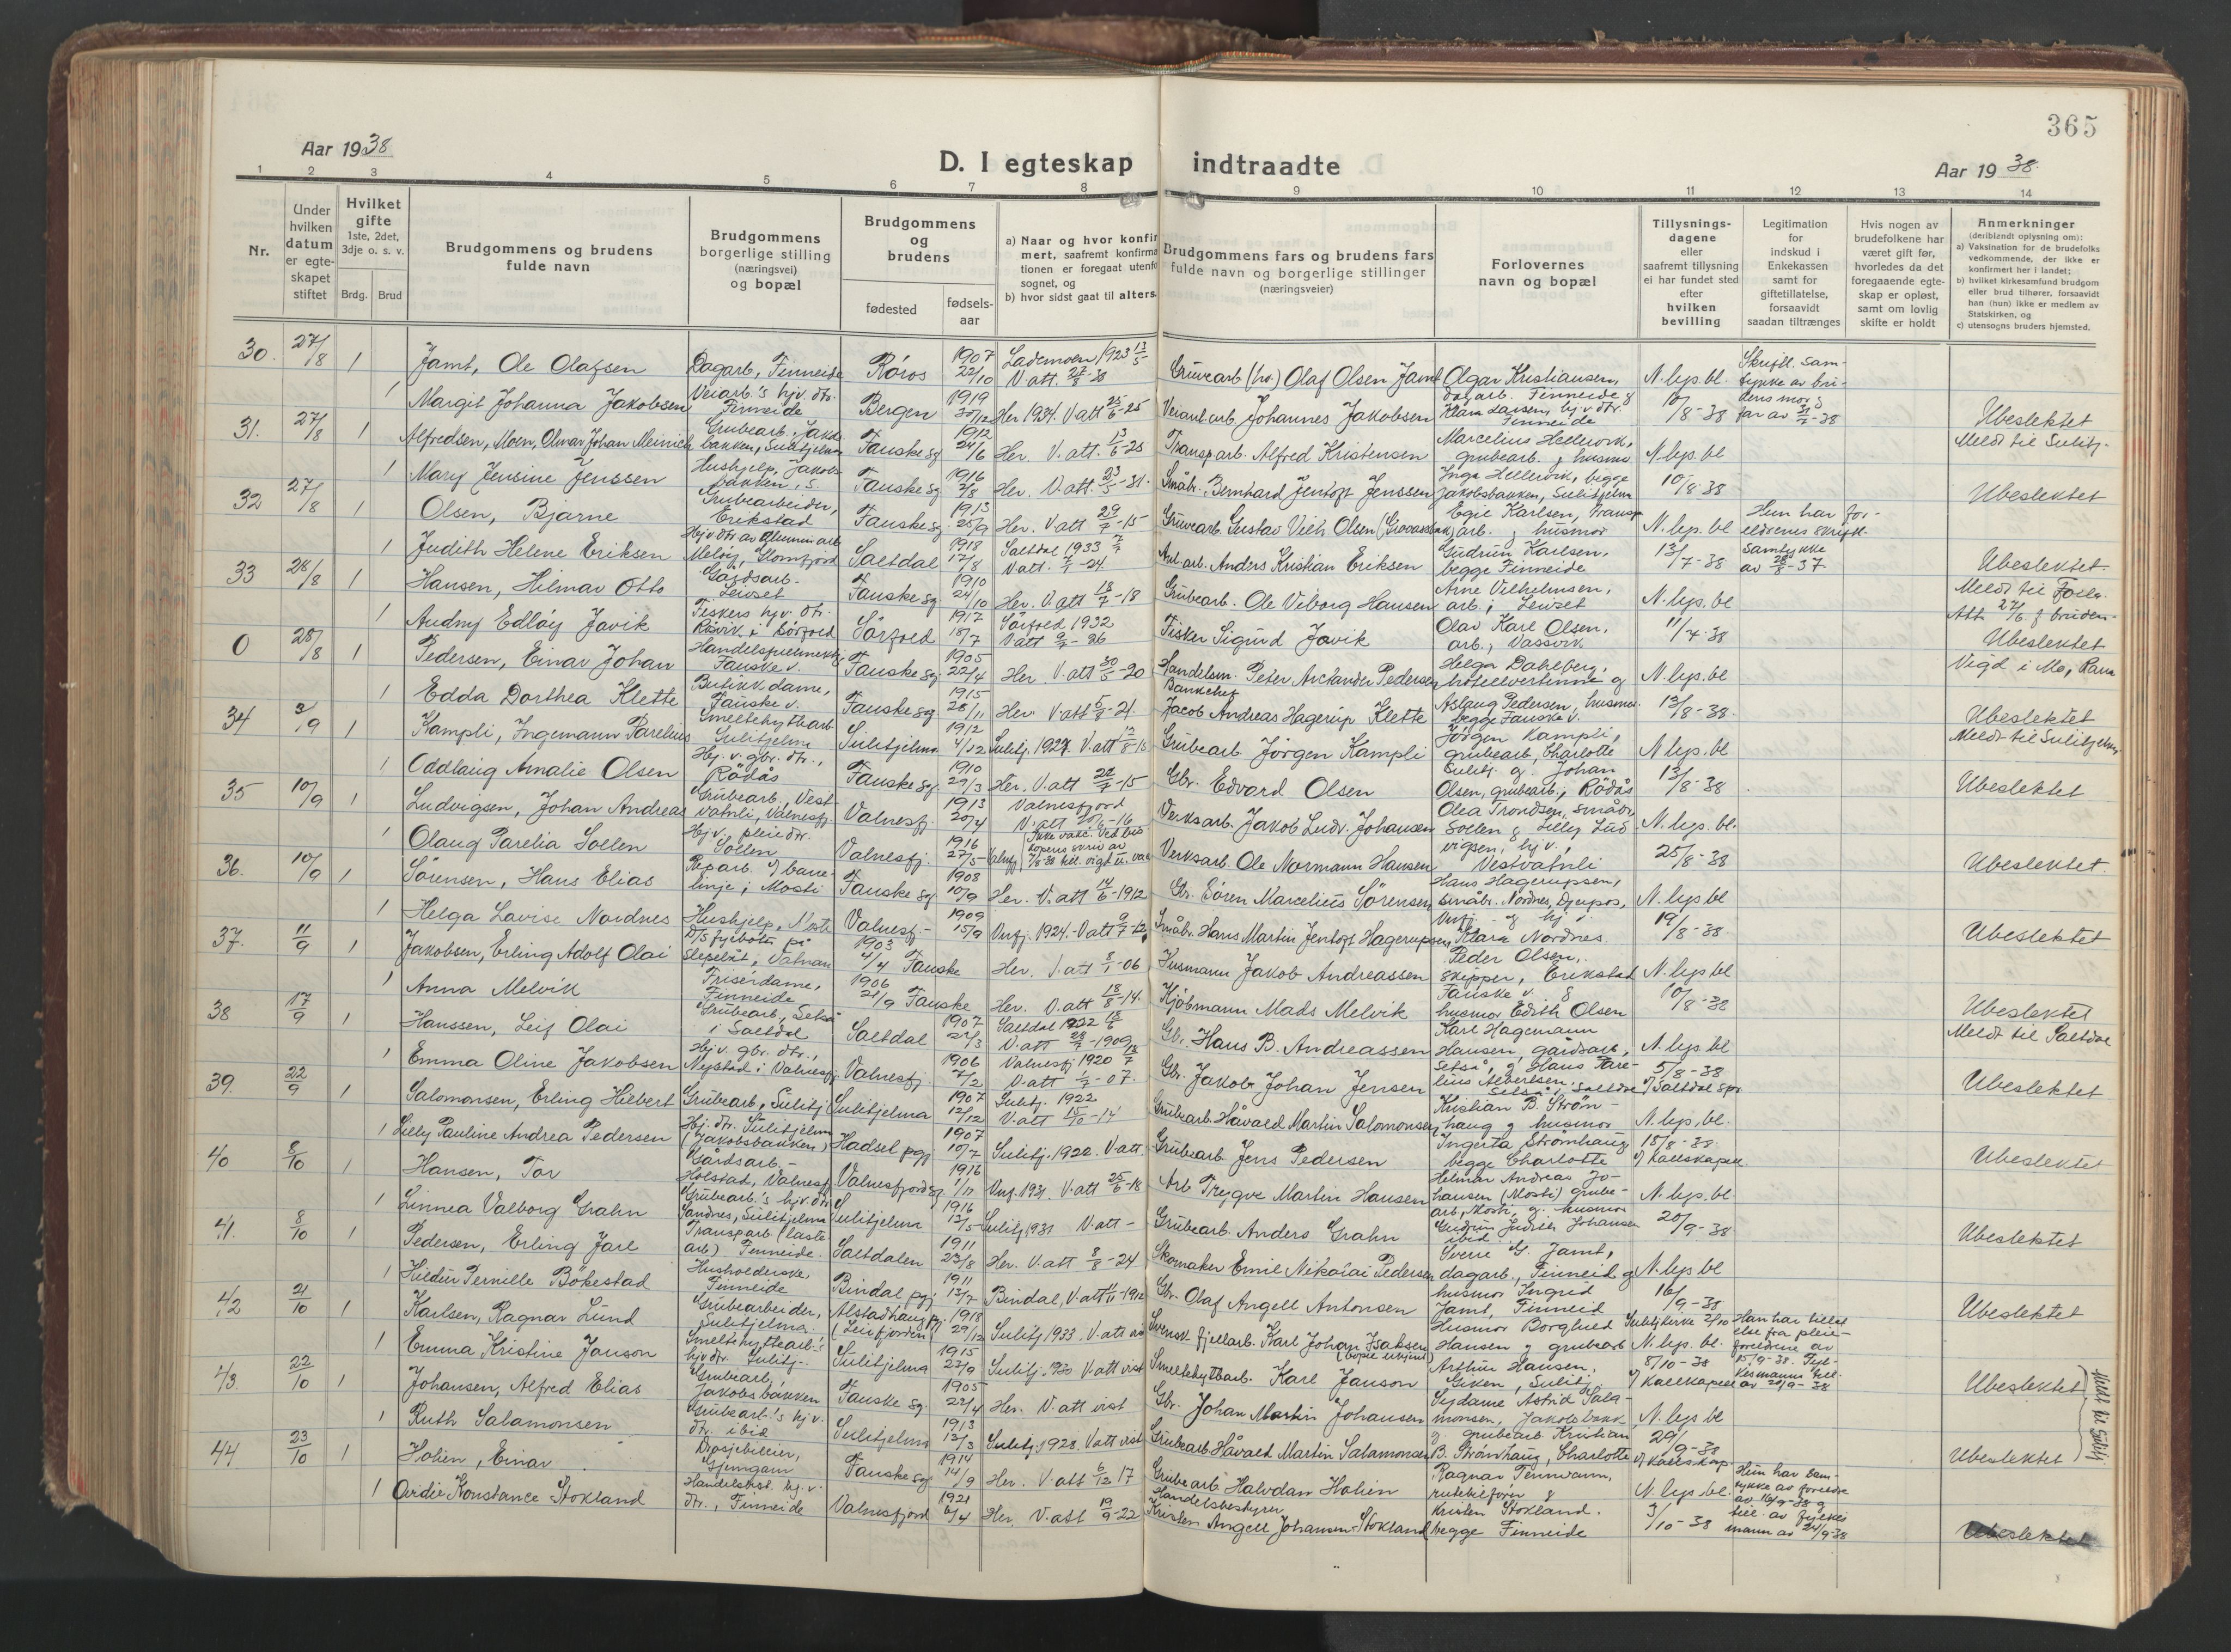 365
Aar 1938
D. I egteskap indtraadte
Aar 1938.
1 2 3 4 5 6 7 8 9 10 11 12 13 14
Nr.
Under hvilken datum er egteskapet stiftet
Hvilket gifte
1ste, 2det, 3dje o. s. v.
Brdg. Brud
Brudgommens og brudens fulde navn
Brudgommens borgerlige stilling (næringsvei) og bopæl
Brudgommens og brudens
fødested
fødsels-aar
a) Naar og hvor konfir
mert, saafremt konfirma
tionen er foregaat utenfo
sognet, og
b) hvor sidst gaat til alters.
Brudgommens fars og brudens fars
fulde navn og borgerlige stillinger
(næringsveier)
Forlovernes
navn og bopæl
Tillysnings-
dagene
eller
saafremt tillysning
ei har fundet sted
efter
hvilken
bevilling
Legitimation
for
indskud i
Enkekassen
samt for
giftetillatelse,
forsaavidt
saadan tiltrænges
Hvis nogen av
brudefolkene har
været gift før,
hvorledes da det
foregaaende egte-
skap er opløst,
samt om lovlig
skifte er holdt
Anmerkninger
(deriblendt oplysning om):
a) Vaksination for de brudefolks
vedkommende, der ikke er
konfirmert her i landet;
b) hvilket kirkesamfund brudgom
eller brud tilhører, forsaavidt
han (hun) ikke er medlem av
Statskirken, og
c) utensogns bruders hjemsted.
30. 27/8 1 Jamt, Ole Olafsen Dagarb, Finneide Röros 1907 22/10 Lademoen 1923 13/5 V att. 27/8-30 Grüvearb (hv.) Olaf Olsen Jamt Olgar Kristiansen, dagarb. Finneide & N. lys. bl. Skriftl. sam-tykke av bri-dens mor & far av
1 Margit Johanna Jakobsen Veiarb.'s hjv. dtr. Finneide Bergen 1919 30/12 Her 1934. V att 25/6-25 Veiarb. Johannes Jakobsen Klara Larsen, hjv dtr. Finneide 10/8-38 Ubeslektet
31. 27/8 1 Alfredsen, Moen, Olmar Johan Meinich Grubearb. Jakobsbakken, Sulitjelma Fauske sg 1912 24/6 Her. V. att. 13/6-25 Transp.arb. Alfred Kristensen Marcelius Hellervik, grubearb. & husmor N. lys. bl Meldt til Sulitj.
1 Mary Jensine Jenssen Hushjelp, Jakobsbakken, S. Fauske sg 1916 2/8 Her. V att. 23/5-31. Småbr. Bernhard Jentoft Jenssen Inga Hellervik, begge Jakobsbakken, Sulitjelma 10/8-38 Ubeslektet
32 27/8 1 Olsen, Bjarne Grubearbeider, Erikstad Fauske sg. 1913 25/9 Her. V att 29/7-15 Grüvearb. Gustav Vieth Olsen Egil Karlsen, Transp. arb. & husmor N. lys. bl Hun har for-eldrenes skriftl. samtykke av 28/8-37
1 Judith Helene Eriksen Hjv dtr av Aluminarb Meløy, Glomfjord Saltdal 1918 17/8 Saltdal 1933 V att. -24 Anl. arb. Anders Kristian Eriksen Gudrun Karlsen, begge Finneide 13/7-38 Ubeslektet.
33 28/8 1 Hansen, Hilmar Otto Gårdsarb. Leivset Fauske sg. 1910 24/10 Her. V. att 18/7-18 Grubearb. Ole Viborg Hansen Arne Vilhelmsen, arb., Leivset N. lys. bl
1 Audny Edlöy Javik Fiskers hjv. dtr. Rösvik i Sörfold Sörfold 1917 18/7 Sörfold 1932 V att -26 Fisker Sigurd Javik Olav Karl Olsen, arb., Vassvik 11/4-38 Ubeslektet
0 28/8 1 Pedersen, Einar Johan Handelsfullmektig, Fauske v. Fauske sg 1905 22/4 Her V. att 30/5-20 Handelsm. Peter Arctander Pedersen Helga Dahlberg, hotellvertinne og N. lys. bl Vigd i Mo, Rana
1 Edda Dorthea Klette Butikkdame, Fauske v. Fauske sg 1915 28/11 Her V att 5/8-21 Banksjef Jacob Andreas Hagerup Klette Aslaug Pedersen, husmor begge Fauske v. 13/8-38. Ubeslektet
34 3/9 1 Kampli, Ingemann Parelius Smeltehyttearb Sulitjelma Sulitjelma 1912 4/12 Sulitj. 1927. V. att 12/8-15 Grubearb. Jörgen Kampli Jörgen Kampli, grubearb, Charlotte N. lys. bl Meldt til Sulitjelma
1 Oddlaug Amalie Olsen Hj. v. gbr. dtr., Rödås Fauske sg. 1910 29/3 Her. V. att 22/7-15 Gbr. Edvard Olsen Sulitj. og Johan Olsen, grubearb., Rödås 13/8-38 Ubeslektet
35 10/9 1 Ludvigsen, Johan Andreas Grubearb., Vestvatnli, Valnesfj. Valnesfj. 1913 20/4 Valnesfjord V. att 20/6-16 Verksarb. Jakob Ludv. Johansen Olea Trondsen, småbr. Sollen & Lilly Ludvigsen, hjv., N. lys. bl.
1 Olaug Parelia Sollen Hjv. pleiedtr. Sollen Valnesfj. 1916 27/5 Valnesfj Verksarb. Ole Normann Hansen Vestvatnli 25/8-38 Ubeslektet.
36. 10/9 1 Sörensen, Hans Elias Rep.arb. v/ banelinje, Mosti Fauske sg 1908 10/9 Her. V. att 14/6-1912 Gbr. Sören Marcelius Sörensen Hans Hagerupsen, småbr. Nordnes, Djupos, N. lys bl
1 Helga Lavise Nordnes Hushjelp, Mosti Valnesfj- 1909 15/9 Vnfj. 1924. V att 9/7-12 Småbr. Hans Martin Jentoft Hagerupsen Vnfj. - og hjv. Klara Nordnes 19/8-38. Ubeslektet
37. 11/9 1 Jakobsen, Erling Adolf Olai D/S fyrböter på slepebåt, Vatnan 1903 4/4 Fauske Her. V. att 8/1-06 Husmann Jakob Andreassen Peder Olsen, skipper, Erikstad N. lys bl
1 Anna Melvik Frisördame, Finneide 1906 21/9 Fauske Her. V. att 18/8-14. Kjöbmann Mads Melvik Fauske v. & husmor Edith Olsen 10/8-38 Ubeslektet
38 17/9 1 Hanssen, Leif Olai Grubearb., Setså i Saltdal Saltdal 1907 22/3 Saltdal 1922 18/6 V. att -1909 Gbr. Hans B. Andreassen Karl Hagemann Hansen, gårdsarb., N. lys. bl Meldt til Saltdal
1 Emma Oline Jakobsen Hj. v. gbr. dtr., Nystad i Valnesfj. Valnesfj. 1906 7/2 Valnesfj 1920 V. att -07. Gbr. Jakob Johan Jensen Setså, og Hans Parelius Albertsen Setså i Saltdal 5/8-38 v/ Saltdal spr. Ubeslektet
39. 22/9 1 Salomonsen, Erling Hilbert Grubearb., Sulitj Sulitjelma 1907 12/12 Sulitj. 1922 V. att 15/10-14 Grubearb. Håvald Martin Salomonsen Kristian B. Strömhaug & husmor N. lys. bl.
1 Lilly Pauline Andrea Pedersen Hj. dtr. Sulitjelma (Jakobsbakken) Hadsel pgj 1907 10/7 Sulitj. 1922. V. att. Grubearb Jens Pedersen Ingerta Strömhaug begge Charlotte 18/8-38. v/ kallskapell. Ubeslektet
40 8/10 1 Hansen, Tor Gårdsarb. Holstad, Valnesfj Valnesfjord sg. 1916 1/11 Vnf. 1931. V. att 25/6-18 Arb. Trygve Martin Hansen Helmar Andreas Johansen (Mosti) grubearb, Mosti, og husmor N. lys. bl.
1 Linnea Valborg Grahn Grubearb.'s hjv. dtr Sandnes, Sulitjelma Sulitjelma 1916 12/5 Sulitj 1931 V. att - Grubearb. Anders Grahn Gudrun Judith Johansen ibid. 20/9-38 Ubeslektet
41. 8/10 1 Pedersen, Erling Jarl Transparb (lastearb) Finneide. Saltdalen 1911 23/8 Her. V. att 8/8-24 Skomaker Emil Nikolai Pedersen Sverre G. Jamt, dagarb., Finneid og N. lys. bl
1 Hildur Pernille Bökestad Husholderske, Finneide Bindal pgj 1911 13/7 Bindal, V. att -1912 Gbr. Olaf Angell Antonsen husmor Ingrid Jamt, Finneid 16/9-38 Ubeslektet
42 21/10 1 Karlsen, Ragnar Lund Grubearbeider, Sulitjelma. Alstadhaug pgj. (Leirfjorden) 1918 29/12 Sulitj 1933. V. att Svensk fjellarb. Karl Johan Isaksen Husmor Borghild Hansen & grubearb Sulitj kirke 2/10 N. lys. bl. Han har tillatelse fra pleieforeldrene av 15/9-38. Fylkesmanns till. av 20/9-38
1 Emma Kristine Janson Smeltehyttearb's hjv dtr. Sulitj.- Sulitjelma 1915 23/9 Sulitj. 1930 V. att vist Smeltehyttearb. Karl Janson Arthur Hansen, Giken, Sulitj. 8/10-38 v/ Kallkapell Ubeslektet
43. 22/10 1 Johansen, Alfred Elias Grubearb, Jakobsbakken Fauske sg. 1905 22/4 Her. V. att vist Gbr. Johan Martin Johansen Sydame Astrid Salamonsen, Jakobsbakk N. lys bl
1 Ruth Salamonsen Grubearb.'s hjv. dtr. ibid Sulitjelma 1913 13/3 Sulitj. 1928. V att vist Grubearb. Håvald Martin Salamonsen & grubearb. Kristian B. Strömhaug, Charlotte 29/9-38 v/ kallskap. Ubeslektet
Meldt til Sulitj.
44 23/10 1 Holien, Einar Drosjebileier, Gjemgam Fauske sg. 1914 14/9 Her. V att 6/12 17 Grubearb. Halvdan Holien Ragnar Tennvann, rutebilförer & N. lys. bl. Hun har samtykke av foreldre av 16/9-38 og till. av fylkesmann av 24/9-38
1 Ovidie Konstance Stokland Handelsbest. hj. v. dtr., Finneide Valnesfjord 1921 6/4 Her. V. att 19/9-22 Handelsbestyrer Kristen Angell Johansen-Stokland Kristen Stokland. begge Finneide 3/10-38 Ubeslektet